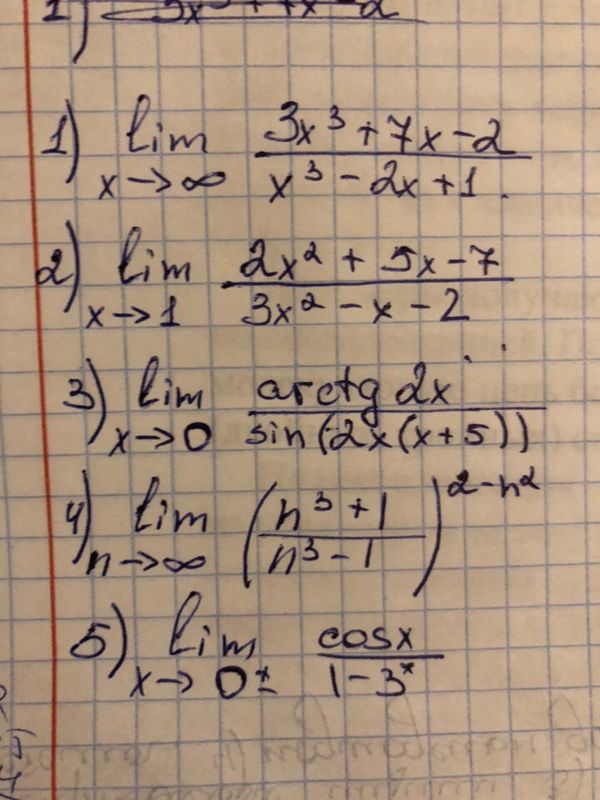 1) 3x³ + 7x - 2
1) lim x→∞ (3x³ + 7x - 2)/(x³ - 2x + 1).
2) lim x→1 (2x² + 5x - 7)/(3x² - x - 2)
3) lim x→0 arctg 2x/sin(2x(x+5))
4) lim n→∞ ((n³ + 1)/(n³ - 1))^(2-n²)
5) lim x→0± cosx/(1 - 3ˣ)